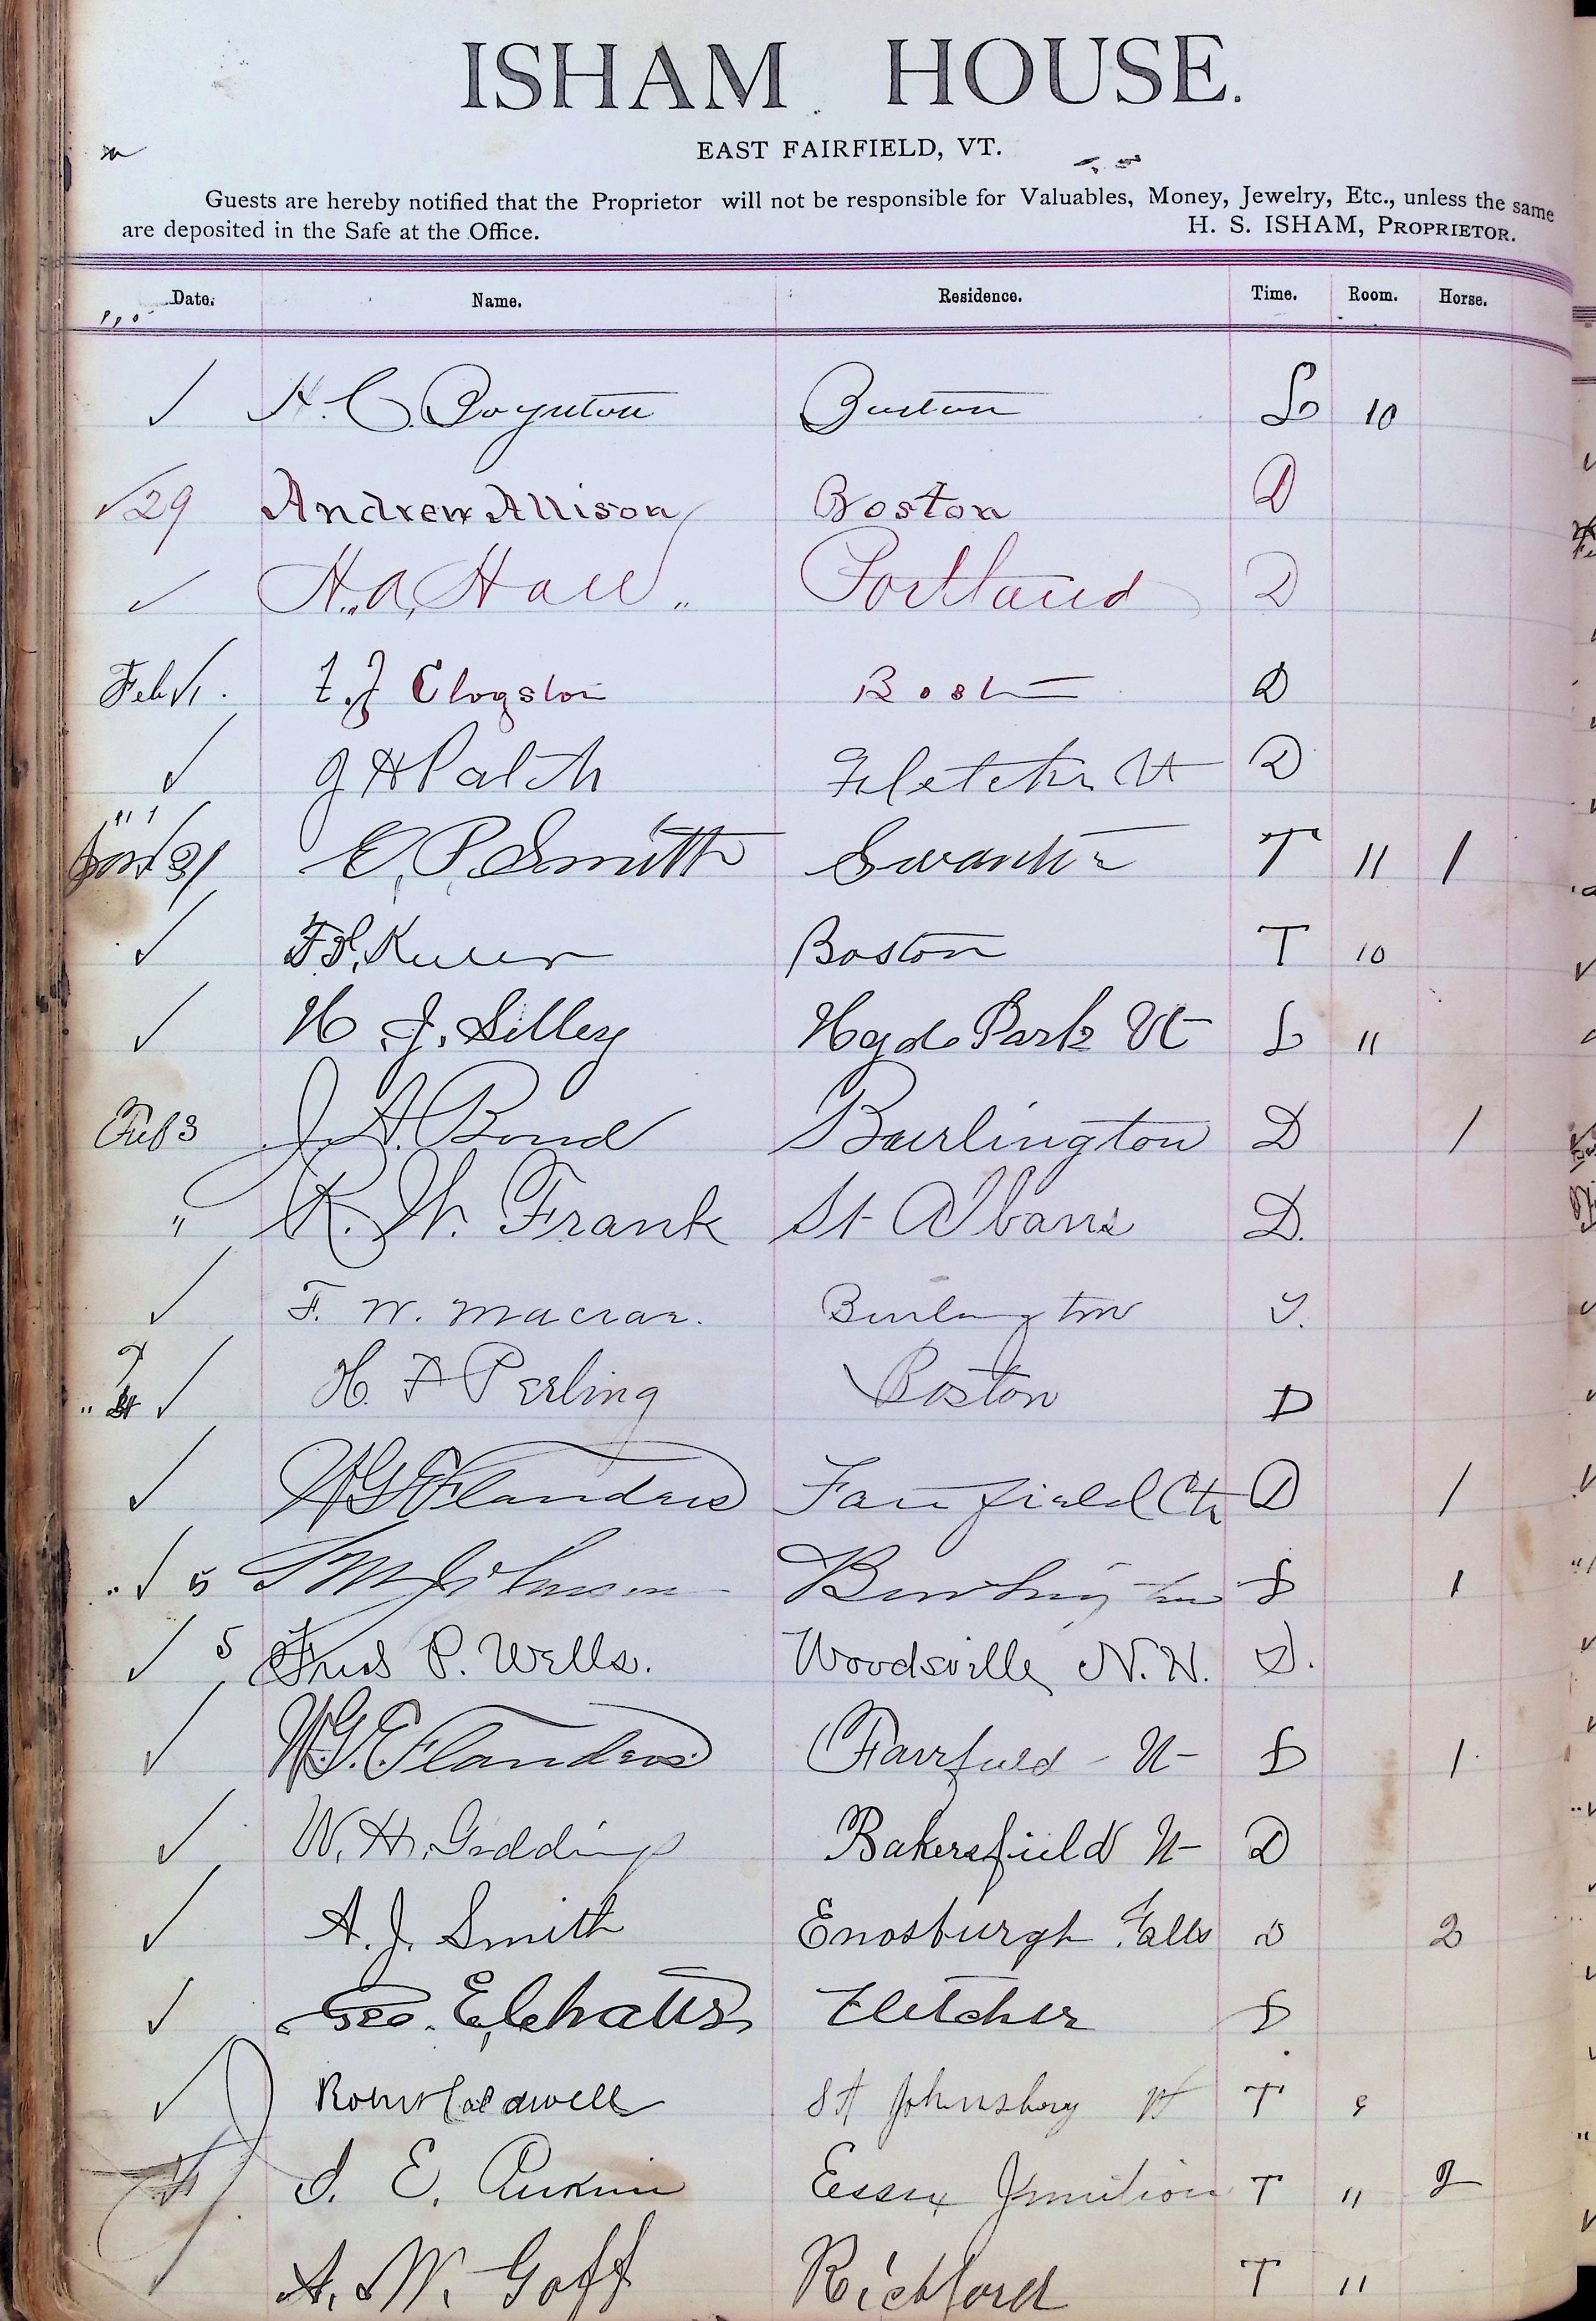 ISHAM HOUSE.
EAST FAIRFIELD, VT.
Guests are hereby notified that the Proprietor will not be responsible for Valuables, Money, Jewelry, Etc., unless the same
are deposited in the Safe at the Office. H. S. ISHAM, PROPRIETOR.
Date. Name. Residence. Time. Room. Horse.
✓ H. C. Boynton Boston L 10
✓ 29 Andrew Allison Boston D
✓ H. A. Hall Portland D
Feb ✓ 1. Clogston Bost D
✓ J H Patch Fletcher Vt D
Jan 31 E. P. Smith Swanton T 11 1
✓ Boston T 10
✓ H. J. Lilley Hyde Park Vt L 11
Feb 3 J. A. Bond Burlington D 1
" R. W. Frank St Albans D.
✓ F. W. Macrae. Burlington
✓ H. F Perling Boston D
✓ W G E Flanders Fairfield Ctr D 1
" ✓ 5 Johnson Burlington 1
✓ 5 Fred P. Wells. Woodsville, N. H. D.
✓ W. G. E. Flanders Fairfield Vt 1
✓ W. H. Giddings Bakersfield Vt D
✓ A. J. Smith Enosburgh Falls 2
✓ Geo. E. Chatts Fletcher
✓ Robt Caldwell St Johnsbury Vt T
E. Essex Junction T 11 2
A. W. Goff Richford T 11